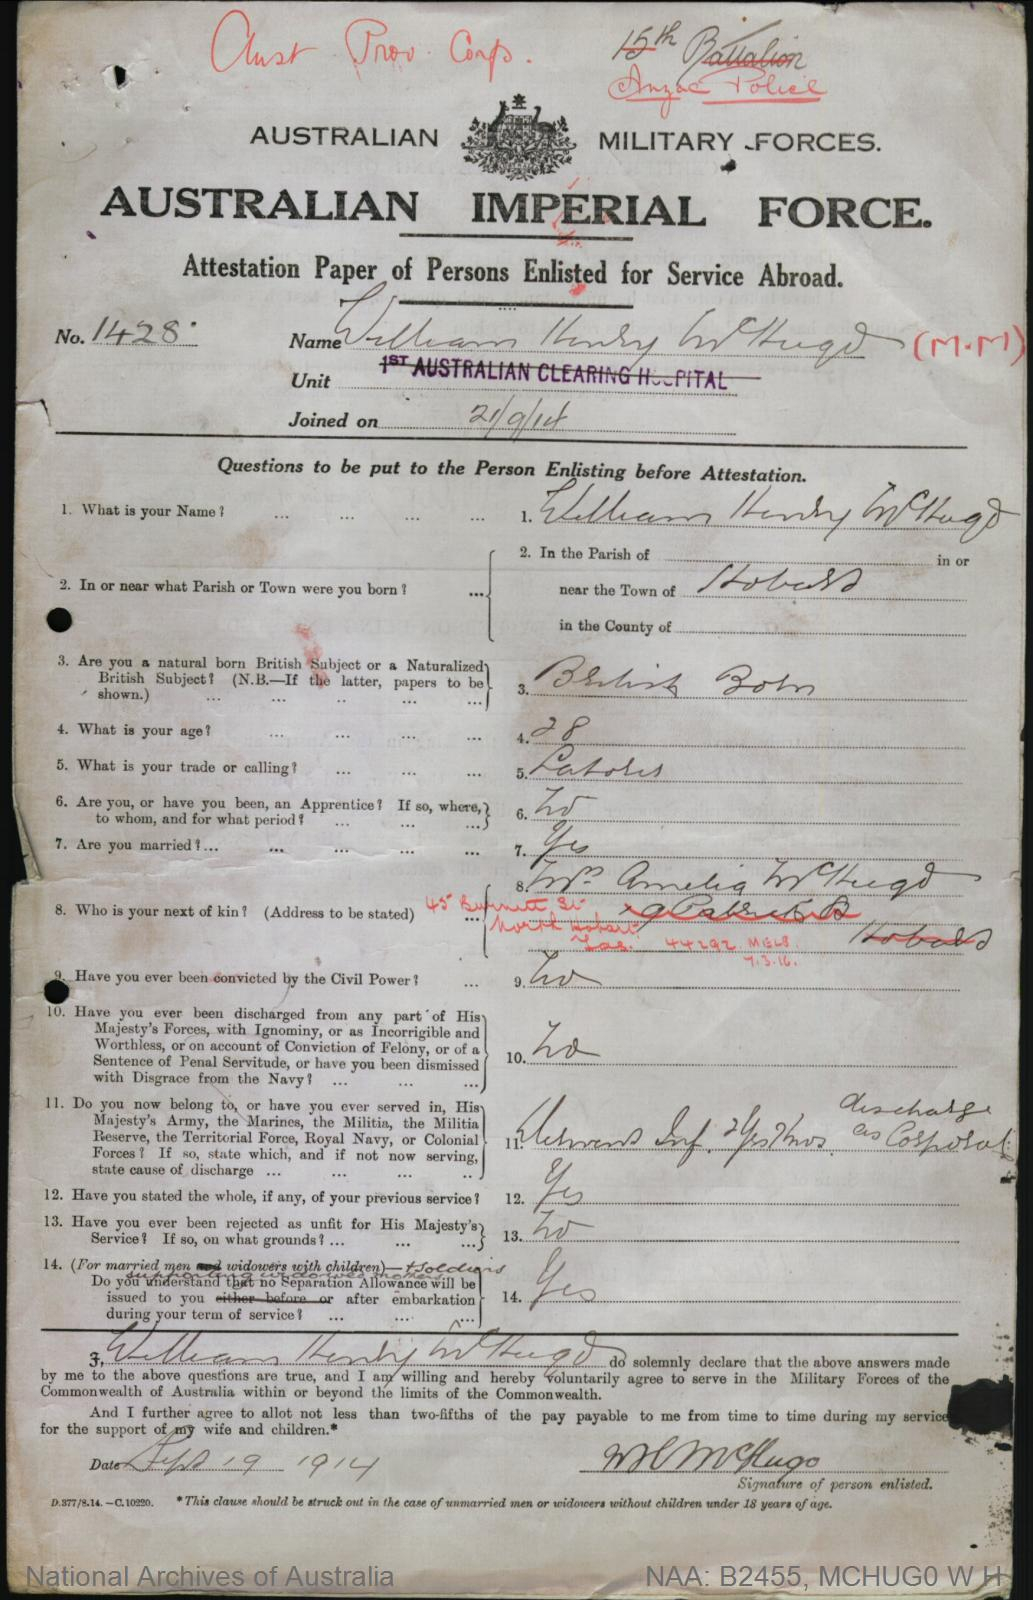 Aust Prov. Corps.
15th Battalion
Anzac Police
AUSTRALIAN MILITARY FORCES.
AUSTRALIAN IMPERIAL FORCE.
Attestation Paper of Persons Enlisted for Service Abroad.
No. 1428
Name William Henry McHugo (M.M)
Unit 1ST AUSTRALIAN CLEARING HOSPITAL
Joined on 21/9/14
Questions to be put to the Person Enlisting before Attestation.
1. What is your Name? ... ... ... ... 1. William Henry McHugo
2. In the Parish of in or
2. In or near what Parish or Town were you born? ... near the Town of Hobart
in the County of
3. Are you a natural born British Subject or a Naturalized
British Subject? (N.B.—If the latter, papers to be 3. British Born
shown.) ... ... .. ... ...
4. What is your age? ... ... ... ... 4. 28
5. What is your trade or calling? ... ... ... 5. Laborer
6. Are you, or have you been, an Apprentice? If so, where, 6. No
to whom, and for what period? ... ... ...
7. Are you married? ... ... ... ... ... 7. Yes
8. Mrs Amelia McHugo
8. Who is your next of kin? (Address to be stated) ... 45 Burnett St
9 Patrick St
North Hobart Hobart
Tas. 44292 MELB
7.3.16.
9. Have you ever been convicted by the Civil Power? ... 9. No
10. Have you ever been discharged from any part of His
Majesty's Forces, with Ignominy, or as Incorrigible and
Worthless, or on account of Conviction of Felony, or of a 10. No
Sentence of Penal Servitude, or have you been dismissed
with Disgrace from the Navy? ... ... ...
11. Do you now belong to, or have you ever served in, His
Majesty's Army, the Marines, the Militia, the Militia discharge
Reserve, the Territorial Force, Royal Navy, or Colonial 11. Derwent Inf. as Corporal
Forces? If so, state which, and if not now serving,
state cause of discharge ... ... ... ..
12. Have you stated the whole, if any, of your previous service? 12. Yes
13. Have you ever been rejected as unfit for His Majesty's 13. No
Service? If so, on what grounds? ... ... ...
14. (For married men and widowers with children)— + soldiers
supporting widowed mothers
Do you understand that no Separation Allowance will be
issued to you either before or after embarkation 14. Yes
during your term of service? ... ... ...
I, William Henry McHugo do solemnly declare that the above answers made
by me to the above questions are true, and I am willing and hereby voluntarily agree to serve in the Military Forces of the
Commonwealth of Australia within or beyond the limits of the Commonwealth.
And I further agree to allot not less than two-fifths of the pay payable to me from time to time during my service
for the support of my wife and children.*
Date Sept 19 1914 WH McHugo
Signature of person enlisted.
D.377/8.14.—C.10220. *This clause should be struck out in the case of unmarried men or widowers without children under 18 years of age.
National Archives of Australia NAA: B2455, MCHUGO W H